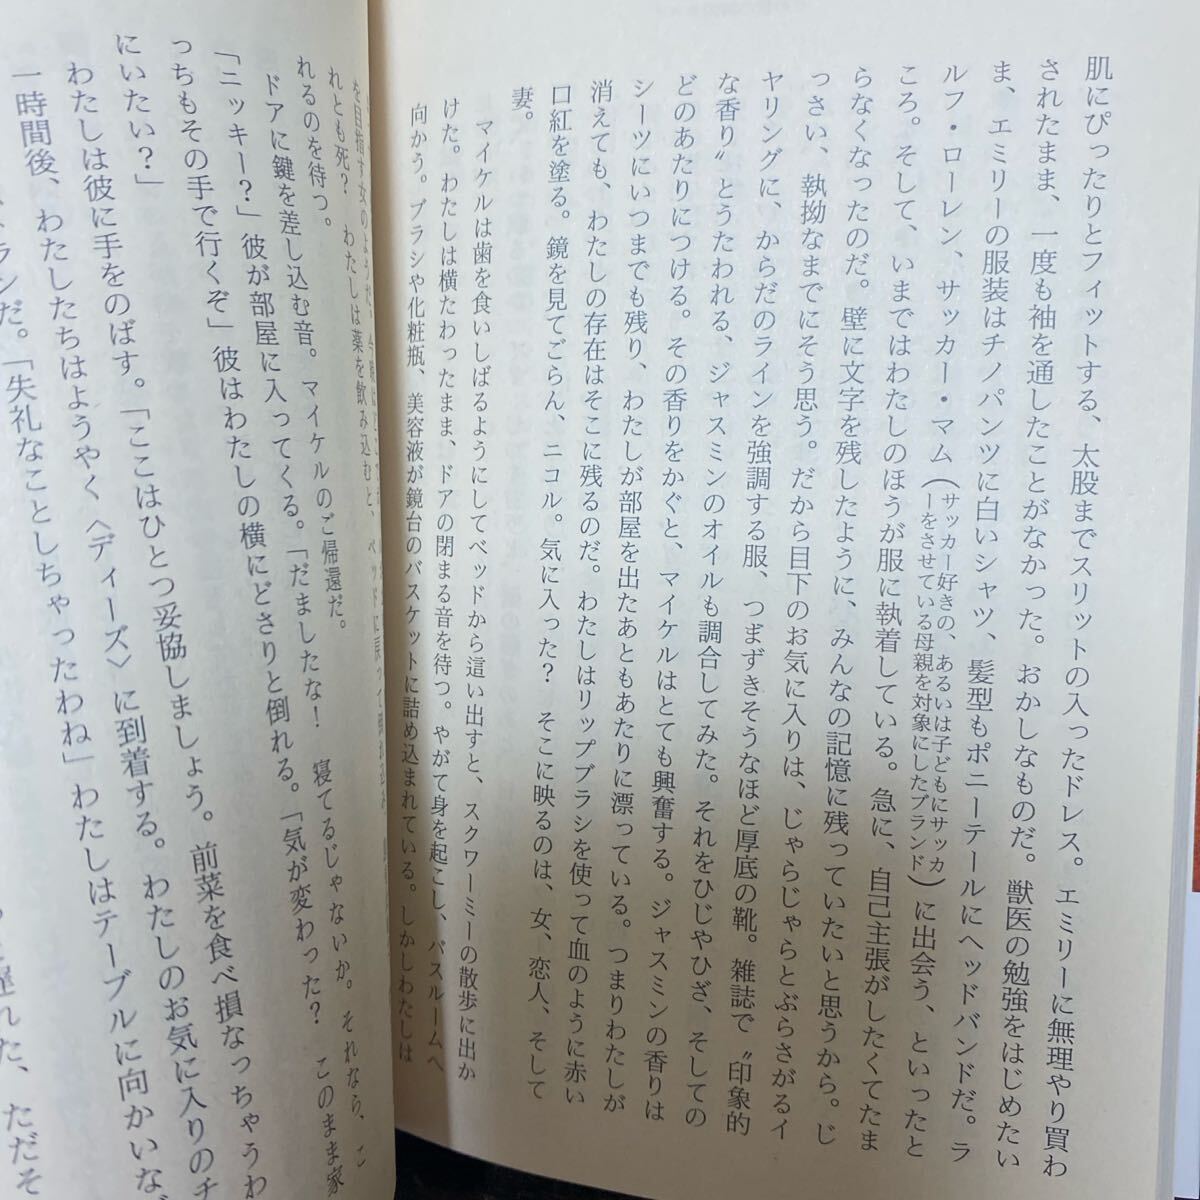 肌にぴったりとフィットする、太股までスリットの入ったドレス。エミリーに無理やり買わ
されたまま、一度も袖を通したことがなかった。おかしなものだ。獣医の勉強をはじめたい
ま、エミリーの服装はチノパンツに白いシャツ、髪型もポニーテールにヘッドバンドだ。ラ
ルフ・ローレン、サッカー・マム（サッカー好きの、あるいは子どもにサッカーをさせている母親を対象にしたブランド）に出会う、といったと
ころ。そして、いまではわたしのほうが服に執着している。急に、自己主張がしたくてたま
らなくなったのだ。壁に文字を残したように、みんなの記憶に残っていたいと思うから。じ
っさい、執拗なまでにそう思う。だから目下のお気に入りは、じゃらじゃらとぶらさがるイ
ヤリングに、からだのラインを強調する服、つまずきそうなほど厚底の靴。雑誌で〝印象的
な香り〟とうたわれる、ジャスミンのオイルも調合してみた。それをひじやひざ、そしての
どのあたりにつける。その香りをかぐと、マイケルはとても興奮する。ジャスミンの香りは
シーツにいつまでも残り、わたしが部屋を出たあともあたりに漂っている。つまりわたしが
消えても、わたしの存在はそこに残るのだ。わたしはリップブラシを使って血のように赤い
口紅を塗る。鏡を見てごらん、ニコル。気に入った？　そこに映るのは、女、恋人、そして
妻。
マイケルは歯を食いしばるようにしてベッドから這い出すと、スクワーミーの散歩に出か
けた。わたしは横たわったまま、ドアの閉まる音を待つ。やがて身を起こし、バスルームへ
向かう。ブラシや化粧瓶、美容液が鏡台のバスケットに詰め込まれている。しかしわたしは
を目指す女のようだ。
れとも死？　わたしは薬を飲み込むと、ベッドに戻って
れるのを待つ。
ドアに鍵を差し込む音。マイケルのご帰還だ。
「ニッキー？」彼が部屋に入ってくる。「だましたな！　寝てるじゃないか。それなら、こ
っちもその手で行くぞ」彼はわたしの横にどさりと倒れる。「気が変わった？　このまま家
にいたい？」
わたしは彼に手をのばす。「ここはひとつ妥協しましょう。前菜を食べ損なっちゃうわ
一時間後、わたしたちはようやく〈ディーズ〉に到着する。わたしのお気に入りのチ
ランだ。「失礼なことしちゃったわね」わたしはテーブルに向かいな
遅れた、ただそ